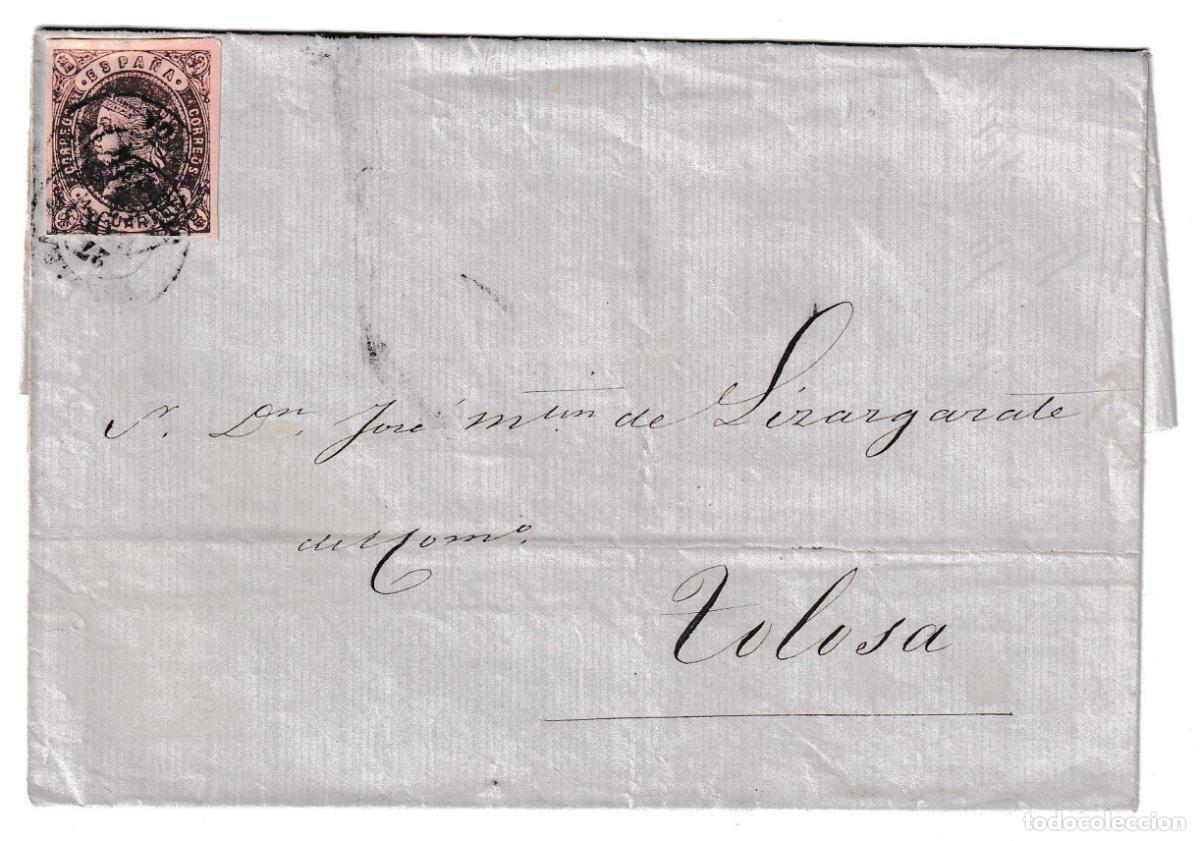 ESPAÑA
CORREOS CORREOS
CUARTOS
27
S. Dn. José Mtin de Lizargarate
del Como.
Tolosa
todocoleccion